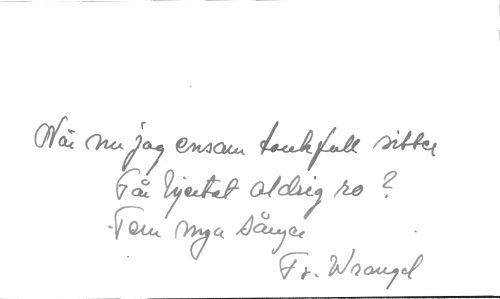 När nu jag ensam tankfull sitter
Får hjertat aldrig ro?
Fem nya sånger
Fr. Wrangel